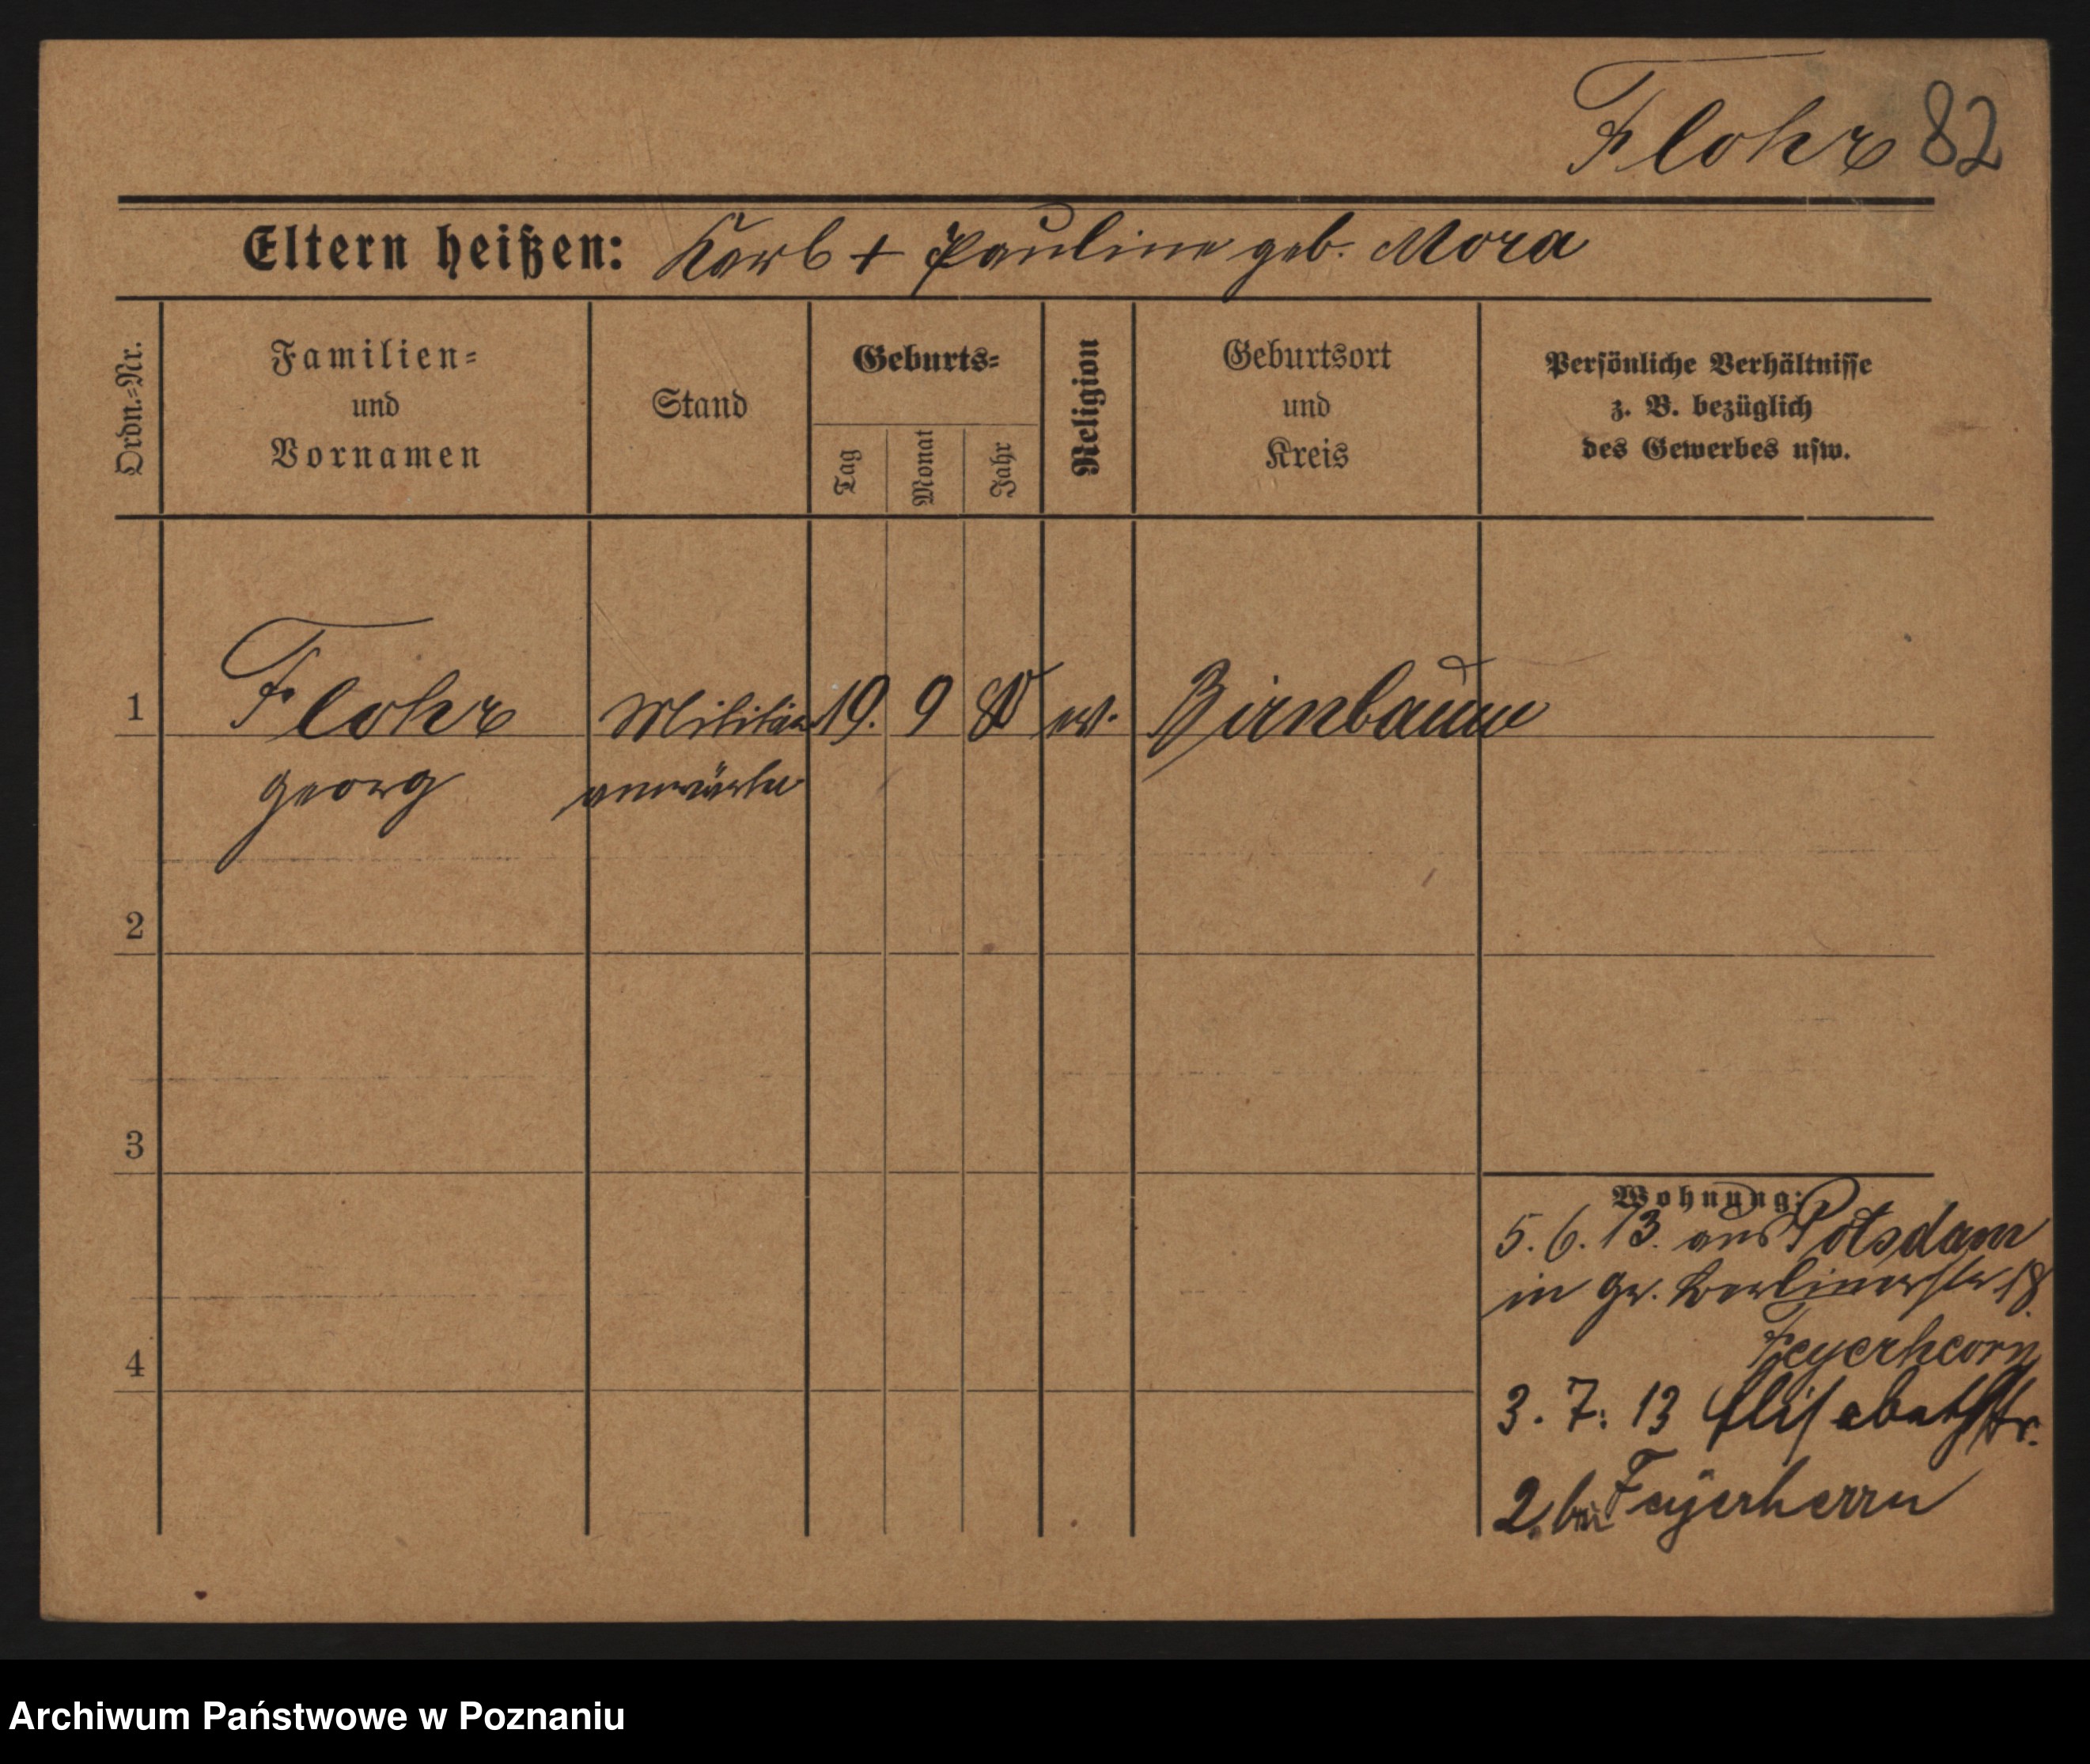 Flohr 82
Eltern heißen: Karl + Pauline geb. Mora
Ordn.-Nr.
Familien-
und
Vornamen
Stand
Geburts-
Tag
Monat
Jahr
Religion
Geburtsort
und
Kreis
Persönliche Verhältnisse
z. B. bezüglich
des Gewerbes usw.
1 Flohr Militär 19. 9 80 ev. Birnbaum
Georg anwärter
2
3
4
Wohnung:
5. 6. 13. aus Potsdam
in Gr. Berlinerstr 18.
3. 7. 13 Elisabethstr.
2. bei Feyerherm
Archiwum Państwowe w Poznaniu